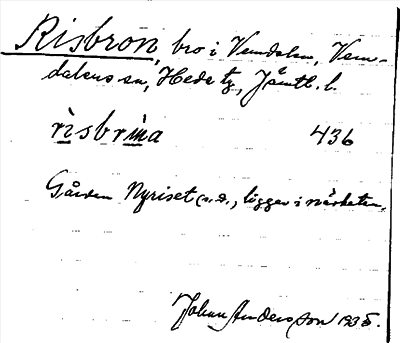 Risbron, bro i Vemdalen, Vem-
dalens sn, Hede tg, Jämtl. l.
risbrina 436
Gården Nyriset (s.d., ligger i närheten.
Johan Andersson 1935.